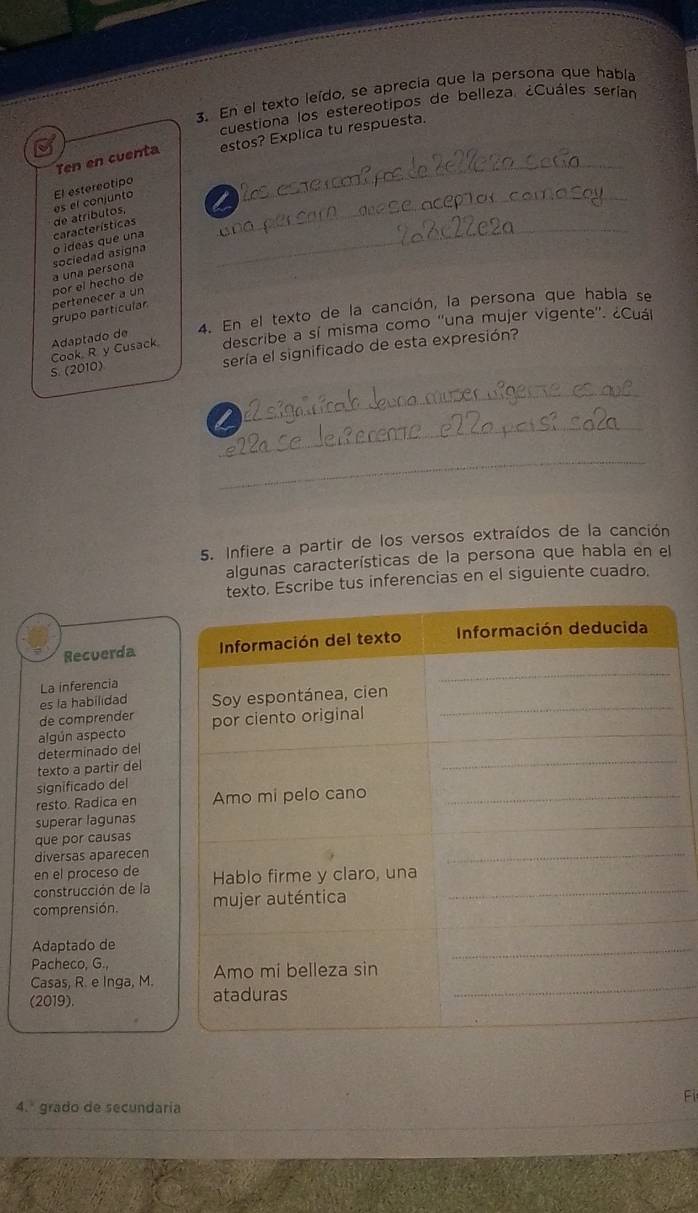 3. En el texto leído, se aprecia que la persona que habla
cuestiona los estereotipos de belleza. ¿Cuáles serían
estos? Explica tu respuesta.
Ten en cuenta
El estereotipo
es el conjunto
de atributos,
características
o ideas que una
sociedad asigna
a una persona
por el hecho de
pertenecer a un
grupo particular.
Adaptado de
Cook, R. y Cusack,
S. (2010)
de
una
4. En el texto de la canción, la persona que habla se
describe a sí misma como "una mujer vigente". ¿Cuál
sería el significado de esta expresión?
es que
se
5. Infiere a partir de los versos extraídos de la canción
algunas características de la persona que habla en el
texto. Escribe tus inferencias en el siguiente cuadro.
Recuerda
La inferencia
es la habilidad
de comprender
algún aspecto
determinado del
texto a partir del
significado del
resto. Radica en
superar lagunas
que por causas
diversas aparecen
en el proceso de
construcción de la
comprensión.
Adaptado de
Pacheco, G.,
Casas, R. e Inga, M.
(2019).
Información del texto Información deducida
Soy espontánea, cien
por ciento original
Amo mi pelo cano
Hablo firme y claro, una
mujer auténtica
Amo mi belleza sin
ataduras
4.° grado de secundaria